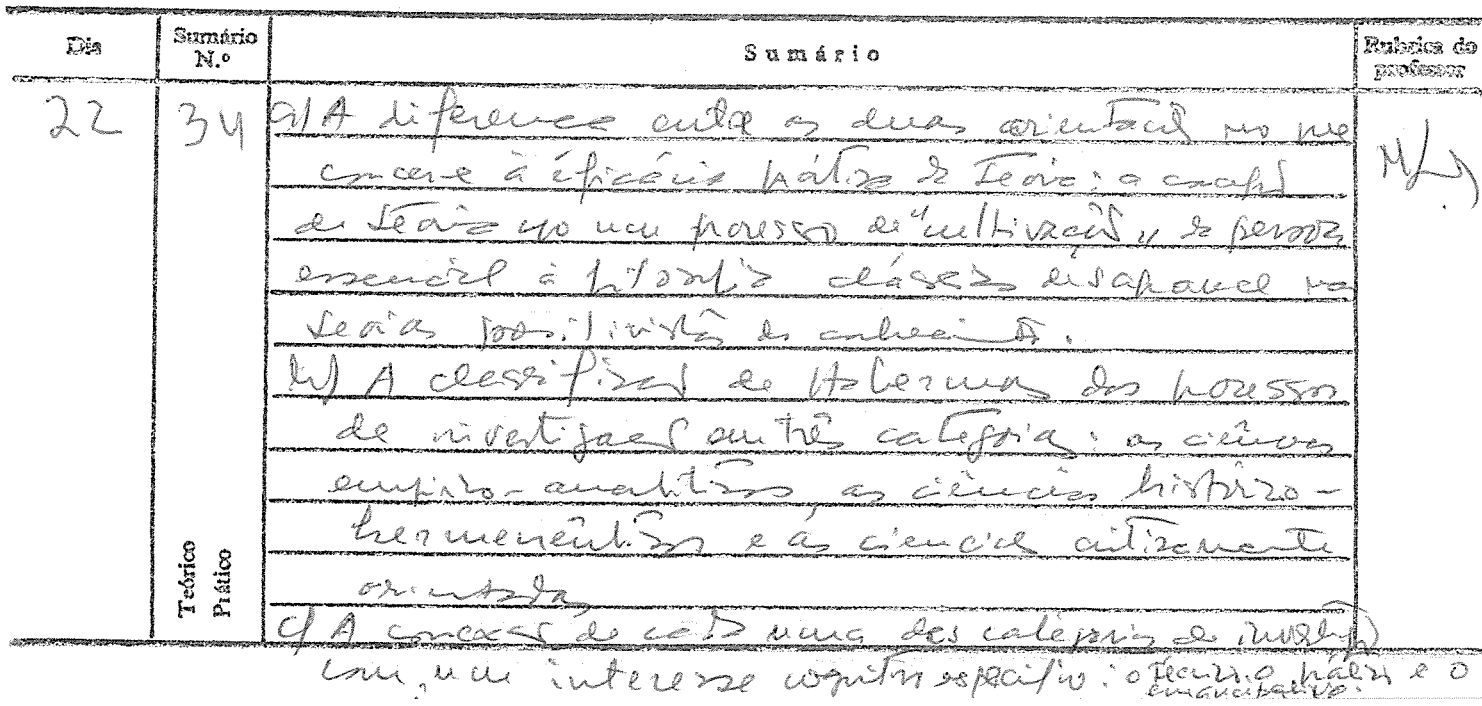 Dia Sumário N.º Sumário Rubrica do professor
22 34 a) A diferença entre as duas orientações no que
concerne à eficácia prática da teoria: a concepção
da teoria como um processo de "cultivação" da pessoa
essencial à filosofia clássica desaparece nas
teorias positivistas do conhecimento.
b) A classificação de Habermas dos processos
de investigação em três categorias: as ciências
empírico-analíticas, as ciências histórico-
hermenêuticas e as ciências criticamente
orientadas
Teórico
Prático
c) A conexão de cada uma das categorias de investigação
com um interesse cognitivo específico: o técnico, o prático e o
emancipativo.